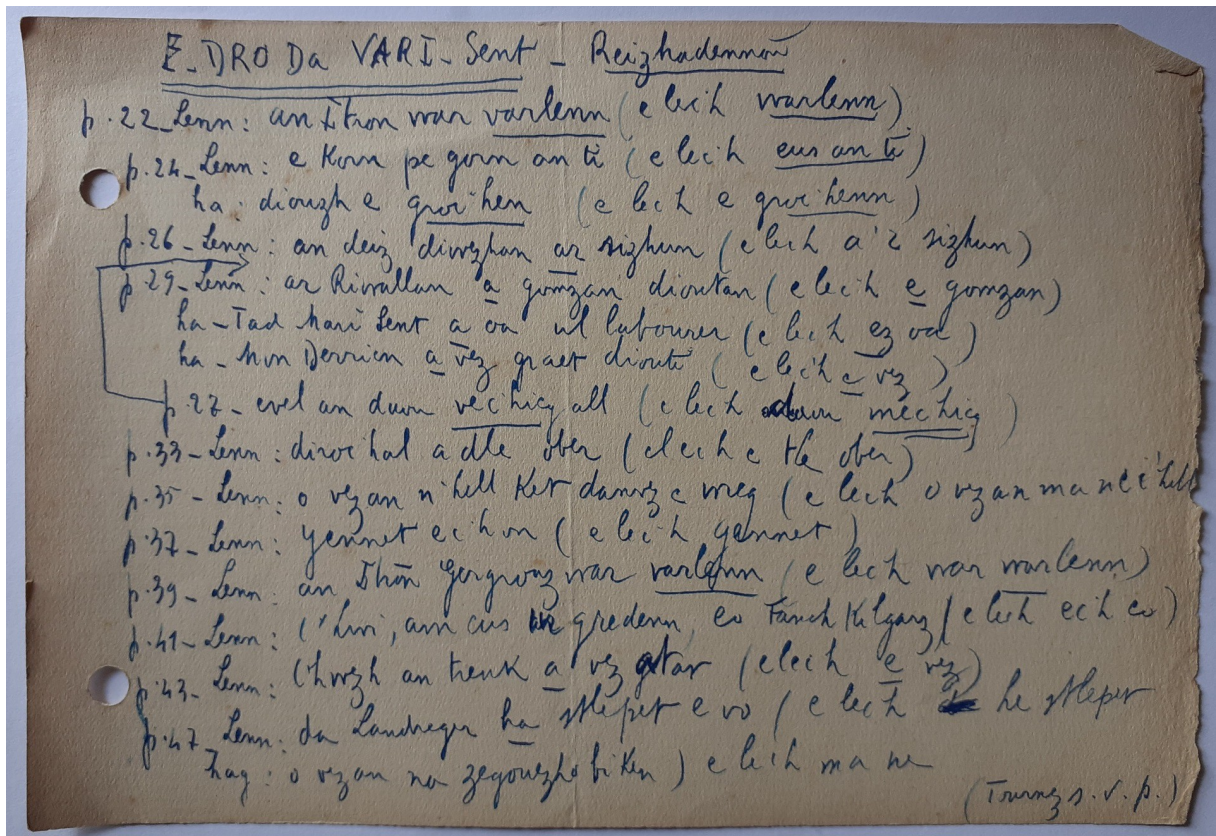 E-DRO Da VARI-Sent - Reizhadennoù
p.22 - Lenn: an Itron war varlenn (e lec'h warlenn)
p.24 - Lenn: e Korn pe gorn an ti (e lec'h eus an ti)
ha: diouzh e groc'hen (e lec'h e groc'henn)
p.26 - Lenn: an deiz diwezhan ar sizhun (e lec'h a'r sizhun)
p.29 - Lenn: ar Riwallan a gomzan dioutan (e lec'h e gomzan)
ha - Tad Mari Sent a oa ul labourer (e lec'h ez oa)
ha - Mon Derrien a vez graet diouti (e lec'h e vez)
p.27 - evel an daou vec'hieg all (e lec'h daou mec'hieg)
p.33 - Lenn: diroc'hal a dle ober (e lec'h e tle ober)
p.35 - Lenn: o vezan n'hell Ket danvez e weg (e lec'h o vezan ma ne c'hell
p.37 - Lenn: yennet ec'h on (e lec'h gennet)
p.39 - Lenn: an Itron war varlenn (e lec'h war warlenn)
p.41 - Lenn: C'hwi, am eus gredenn, eo Fanch Kilgarz (e lec'h ec'h eo)
p.43 - Lenn: C'hwezh an trenk a vez gtar (e lec'h e vez)
p.47 - Lenn: da Landreger ha stlepet e vo (e lec'h he stlepet
hag: o vezan na zegouezho biKen) e lec'h ma ne
(Tournez s.v.p.)